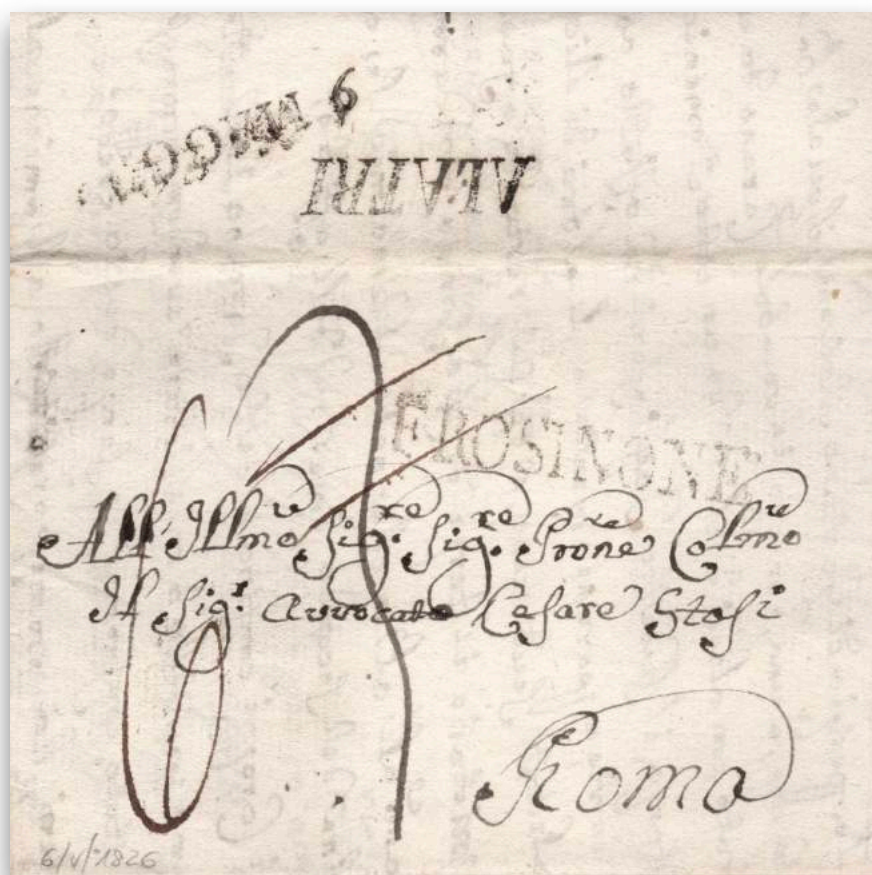 6 MAGGIO
ALATRI
FROSINONE
All' Illmo Sigre. Sigre. Prone Colmo
Il Sigr. Avvocato Cesare Stasi
Roma
6/V/1826